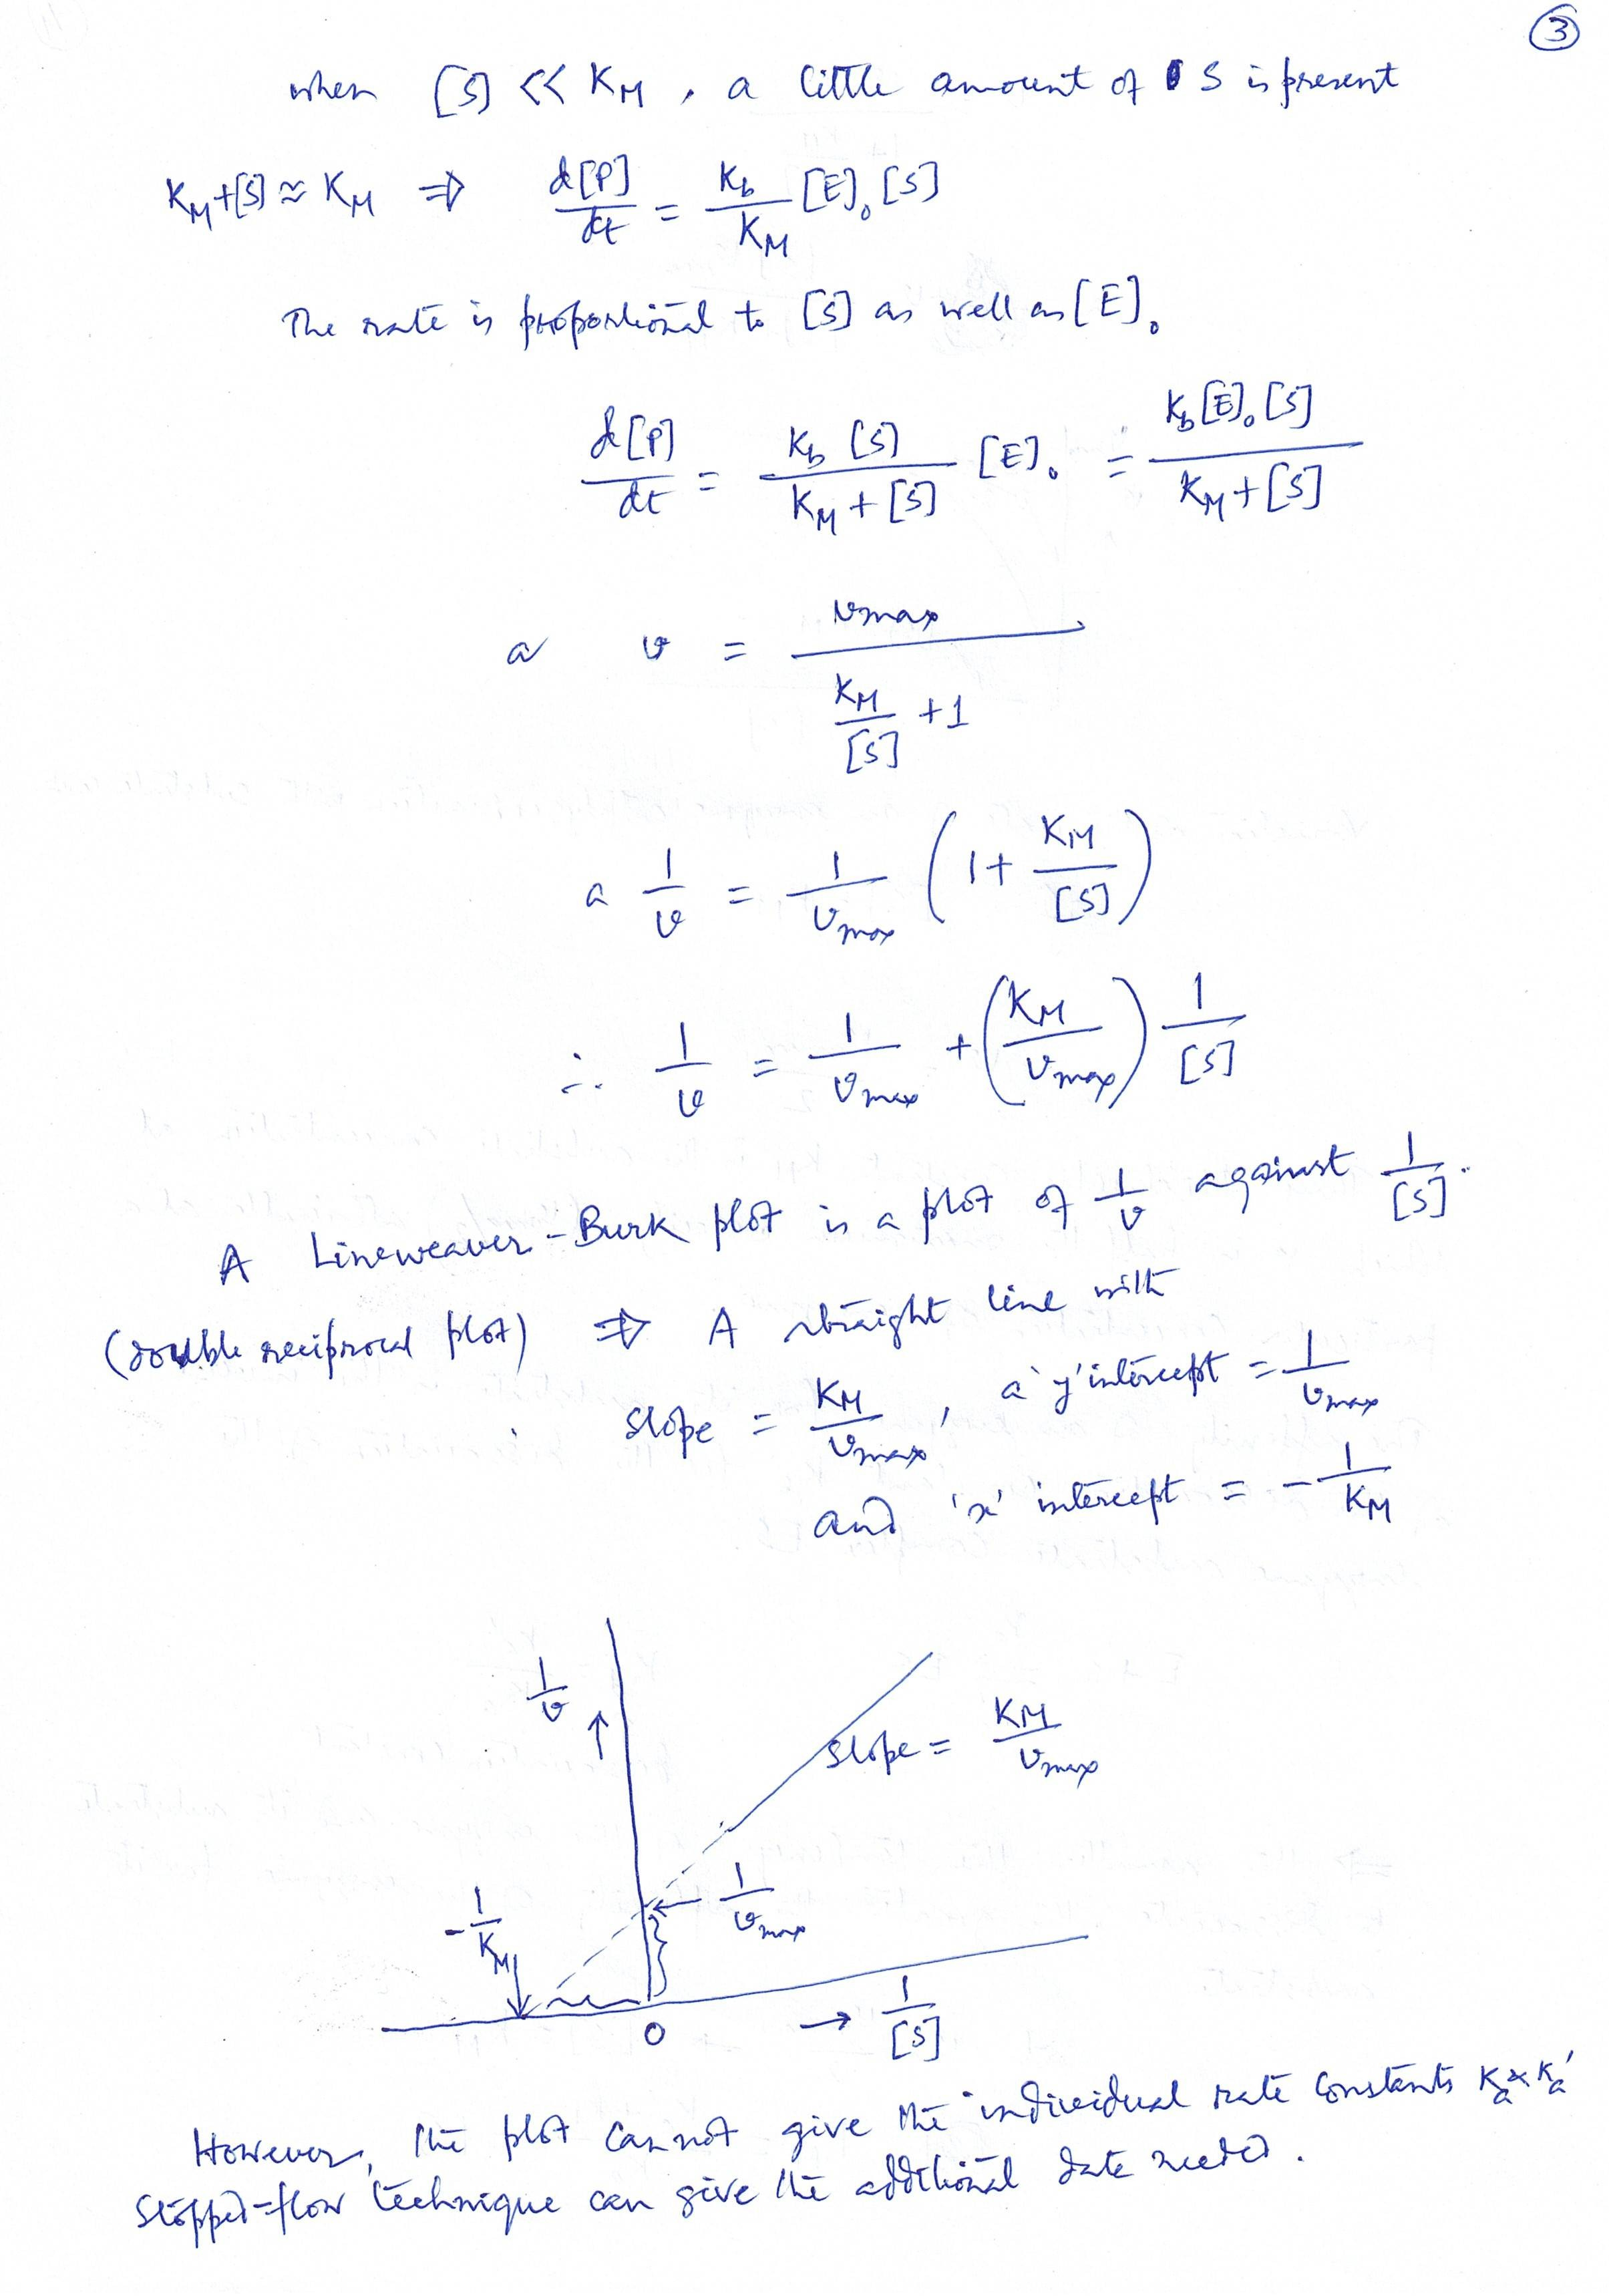 ③
when [S] << K_M, a little amount of S is present
K_M+[S] ≈ K_M ⇒ d[P]/dt = K_b/K_M [E]₀ [S]
The rate is proportional to [S] as well as [E]₀
d[P]/dt = K_b [S]/(K_M + [S]) [E]₀ = K_b[E]₀[S]/(K_M + [S])
or v = v_max/(K_M/[S] + 1)
or 1/v = 1/v_max (1 + K_M/[S])
∴ 1/v = 1/v_max + (K_M/v_max) 1/[S]
A Lineweaver-Burk plot is a plot of 1/v against 1/[S].
(double reciprocal plot) ⇒ A straight line with
slope = K_M/v_max, a 'y' intercept = 1/v_max
and 'x' intercept = - 1/K_M
1/v ↑
slope = K_M/v_max
← 1/v_max
-1/K_M ↓
0
→ 1/[S]
However, the plot cannot give the individual rate constants K_a & K_a'
Stopped-flow technique can give the additional date needed.